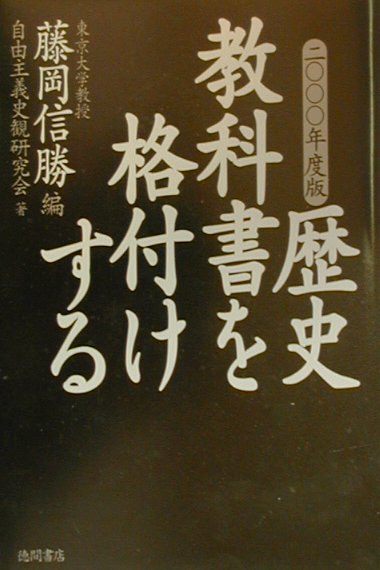 二〇〇〇年度版
歴史
教科書を
格付け
する
東京大学教授
藤岡信勝 編
自由主義史観研究会 著
徳間書店